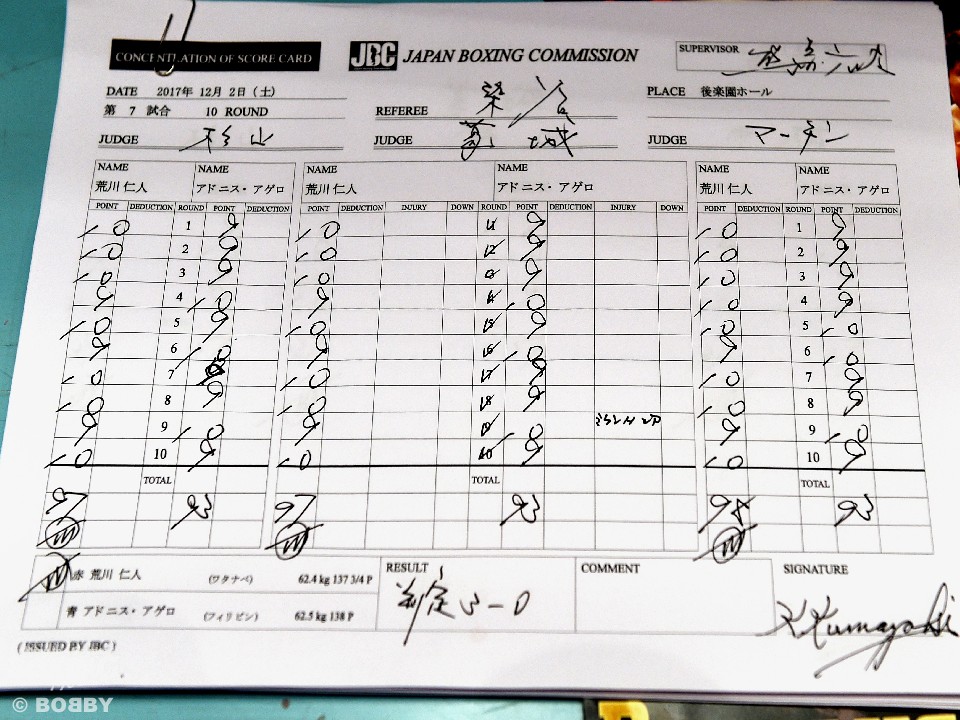 CONCENTLATION OF SCORE CARD JBC JAPAN BOXING COMMISSION SUPERVISOR
DATE 2017年 12月 2日 (土) PLACE 後楽園ホール
第 7 試合 10 ROUND REFEREE
JUDGE 杉山 JUDGE 葛城 JUDGE マーチン
NAME NAME NAME NAME NAME NAME
荒川 仁人 アドニス・アゲロ 荒川 仁人 アドニス・アゲロ 荒川 仁人 アドニス・アゲロ
POINT DEDUCTION ROUND POINT DEDUCTION POINT DEDUCTION INJURY DOWN ROUND POINT DEDUCTION INJURY DOWN POINT DEDUCTION ROUND POINT DEDUCTION
10 1 9 10 9 10 1 9
10 2 9 10 9 10 2 9
10 3 9 10 9 10 3 9
9 4 10 9 10 10 4 9
10 5 9 10 9 10 5 10
9 6 10 9 10 9 6 10
10 7 10 9 10 7 9
8 9 9 10 8 9
9 9 10 9 10 9 9 10
10 10 9 10 9 10 10 9
TOTAL TOTAL TOTAL
97 93 97 93 98 93
W W W
W 赤 荒川 仁人 (ワタナベ) 62.4 kg 137 3/4 P RESULT COMMENT SIGNATURE
青 アドニス・アゲロ (フィリピン) 62.5 kg 138 P 判定 3-0
( ISSUED BY JBC )
© BOBBY